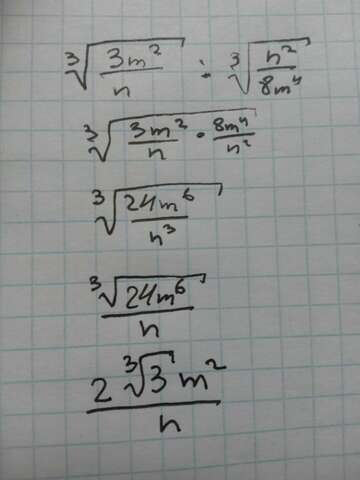 ∛(3m²/n) : ∛(n²/8m⁴)
∛(3m²/n · 8m⁴/n²)
∛(24m⁶/n³)
∛(24m⁶)/n
2∛3 m²/n